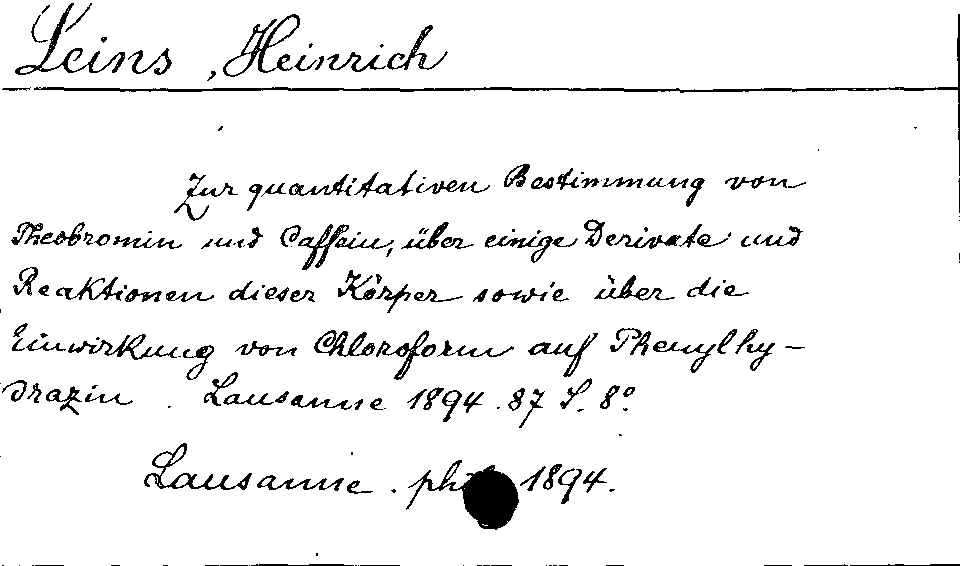 Leins, Heinrich
Zur quantitativen Bestimmung von
Theobromin und Caffein, über einige Derivate und
Reaktionen dieser Körper sowie über die
Einwirkung von Chloroform auf Phenylhy-
drazin. Lausanne 1894. 87 S. 8°
Lausanne. 1894.